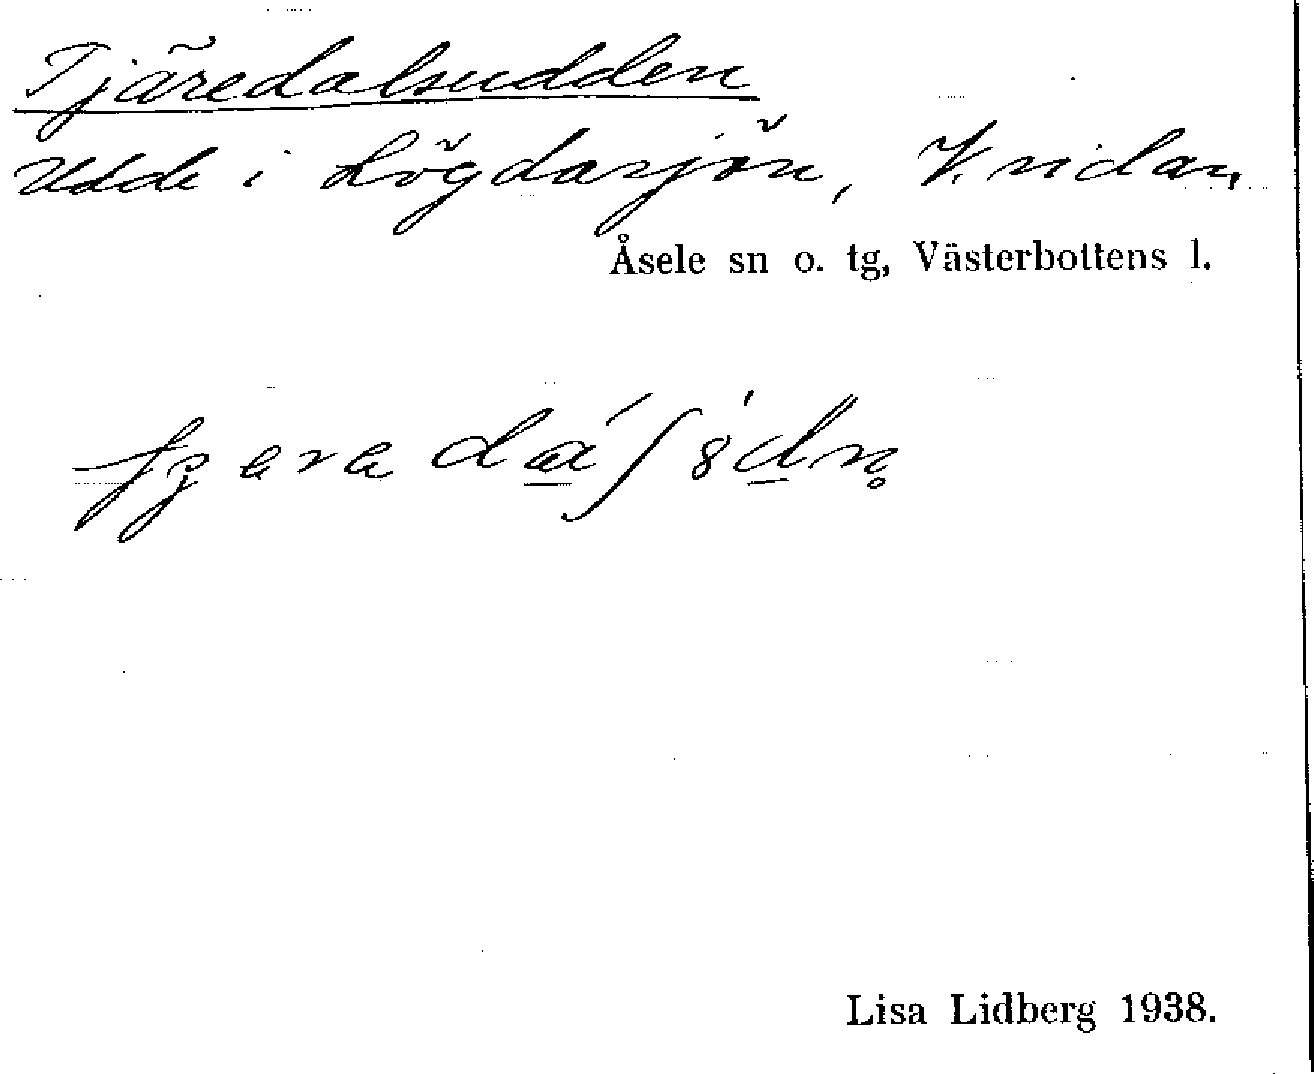 Tjäredalsudden
Udde i Lögdasjön, V. sidan,
Åsele sn o. tg, Västerbottens l.
Lisa Lidberg 1938.